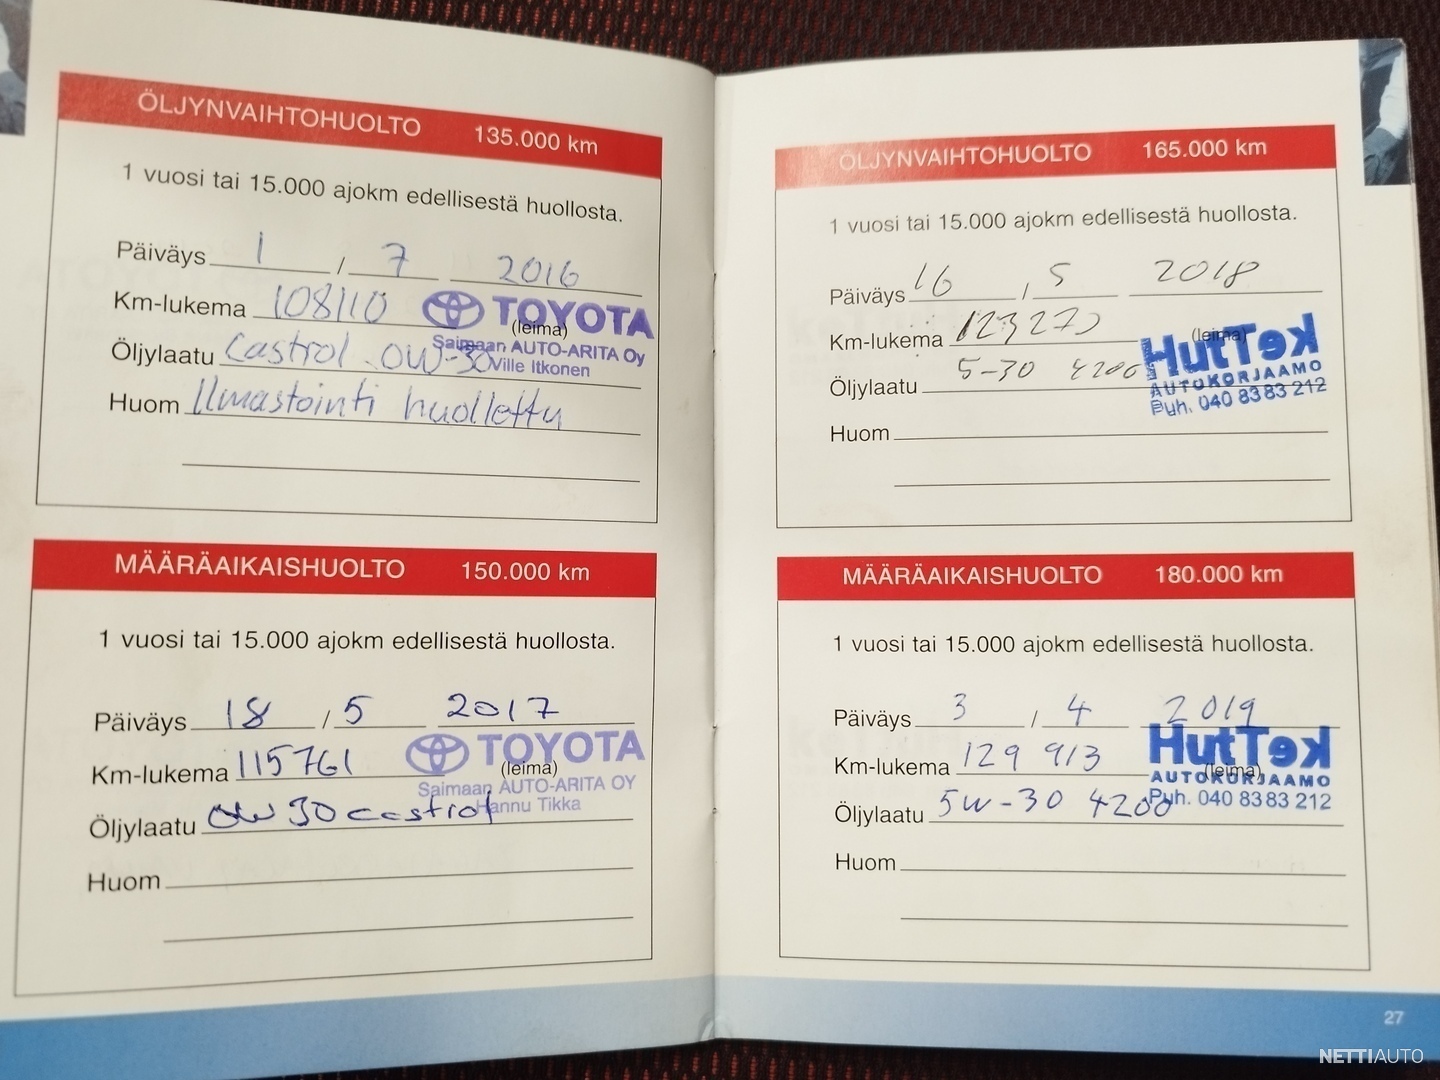 ÖLJYNVAIHTOHUOLTO 135.000 km
1 vuosi tai 15.000 ajokm edellisestä huollosta.
Päiväys 1 / 7 2016
Km-lukema 108110
(leima)
TOYOTA
Saimaan AUTO-ARITA Oy
Ville Itkonen
Öljylaatu Castrol 0W-30
Huom Ilmastointi huollettu
MÄÄRÄAIKAISHUOLTO 150.000 km
1 vuosi tai 15.000 ajokm edellisestä huollosta.
Päiväys 18 / 5 2017
Km-lukema 115761
(leima)
TOYOTA
Saimaan AUTO-ARITA OY
Hannu Tikka
Öljylaatu 0W30 castrol
Huom
ÖLJYNVAIHTOHUOLTO 165.000 km
1 vuosi tai 15.000 ajokm edellisestä huollosta.
Päiväys 16 / 5 2018
Km-lukema 123270
(leima)
HutTek
AUTOKORJAAMO
Puh. 040 8383 212
Öljylaatu 5-30 4200
Huom
MÄÄRÄAIKAISHUOLTO 180.000 km
1 vuosi tai 15.000 ajokm edellisestä huollosta.
Päiväys 3 / 4 2019
Km-lukema 129 913
(leima)
HutTek
AUTOKORJAAMO
Puh. 040 8383 212
Öljylaatu 5W-30 4200
Huom
27
NETTIAUTO